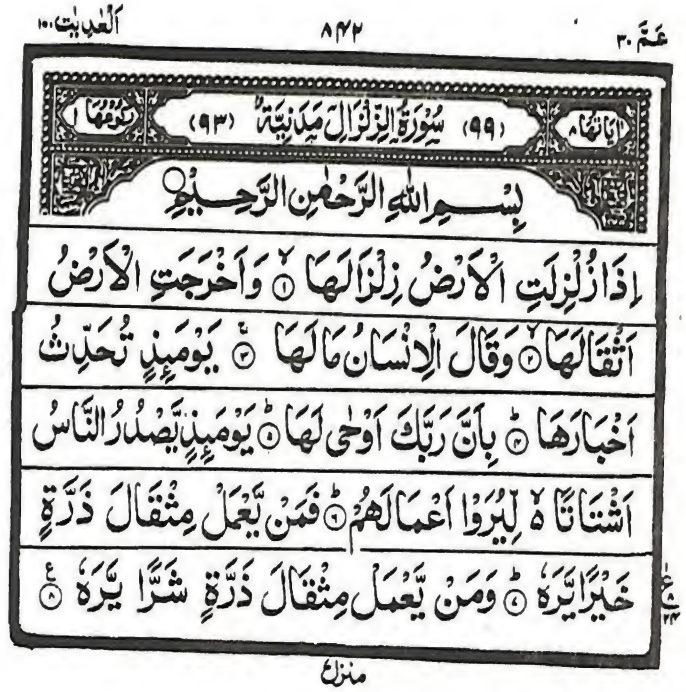 عَمَّ ٣٠ ٨٤٢ اَلْعٰدِيٰت ١٠٠
اٰيَاتُهَا ٨ (٩٩) سُوْرَةُ الزِّلْزَالِ مَدَنِيَّةٌ (٩٣) رُكُوْعُهَا ١
بِسْمِ اللّٰهِ الرَّحْمٰنِ الرَّحِيْمِ
اِذَا زُلْزِلَتِ الْاَرْضُ زِلْزَالَهَا ۙ﴿۱﴾ وَاَخْرَجَتِ الْاَرْضُ
اَثْقَالَهَا ۙ﴿۲﴾ وَقَالَ الْاِنْسَانُ مَا لَهَا ۚ﴿۳﴾ يَوْمَىِٕذٍ تُحَدِّثُ
اَخْبَارَهَا ؕ﴿۴﴾ بِاَنَّ رَبَّكَ اَوْحٰى لَهَا ؕ﴿۵﴾ يَوْمَىِٕذٍ يَّصْدُرُ النَّاسُ
اَشْتَاتًا ۵ۙ لِّيُرَوْا اَعْمَالَهُمْ ؕ﴿۶﴾ فَمَنْ يَّعْمَلْ مِثْقَالَ ذَرَّةٍ
خَيْرًا يَّرَهٗ ؕ﴿۷﴾ وَمَنْ يَّعْمَلْ مِثْقَالَ ذَرَّةٍ شَرًّا يَّرَهٗ ﴿۸﴾ ع
ع ٨ ٢٤
منزل